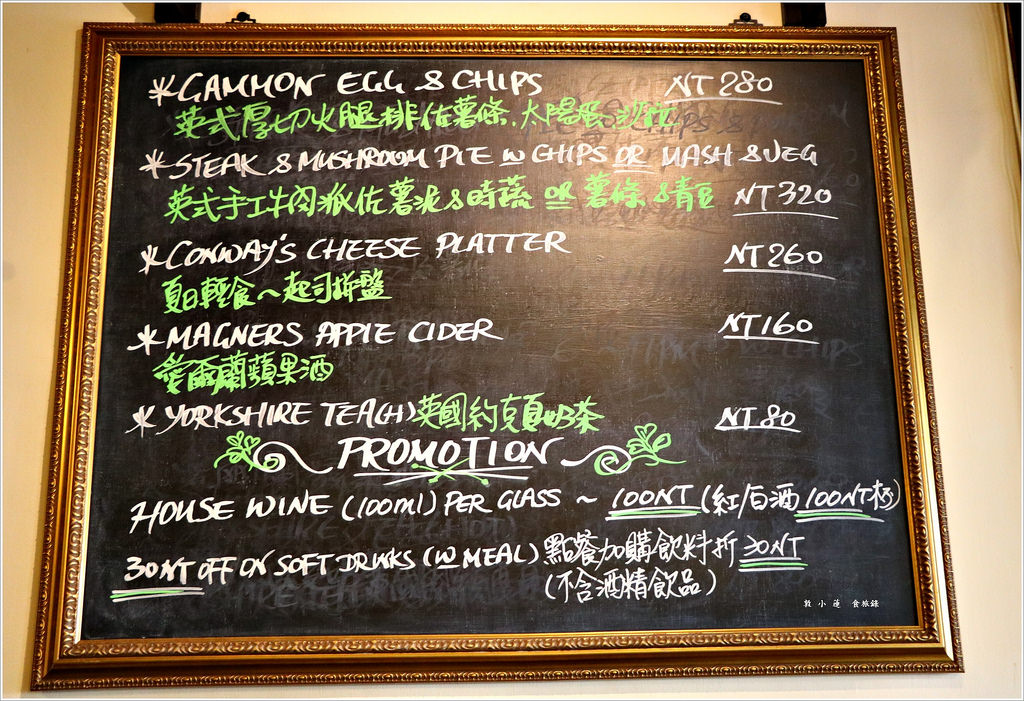 *GAMMON EGG & CHIPS NT 280
英式厚切火腿排佐薯條.太陽蛋.沙拉
*STEAK & MUSHROOM PIE w CHIPS OR MASH & VEG
英式手工牛肉派佐薯泥&時蔬 OR 薯條&青豆 NT 320
*CONWAY'S CHEESE PLATTER NT 260
夏日輕食~起司拼盤
*MAGNERS APPLE CIDER NT 160
愛爾蘭蘋果酒
*YORKSHIRE TEA(H)英國約克夏奶茶 NT 80
PROMOTION
HOUSE WINE (100ml) PER GLASS ~ 100NT (紅/白酒 100NT杯)
30NT OFF ON SOFT DRINKS (W MEAL) 點餐加購飲料折 30NT
(不含酒精飲品)
敦小蓮 食旅錄